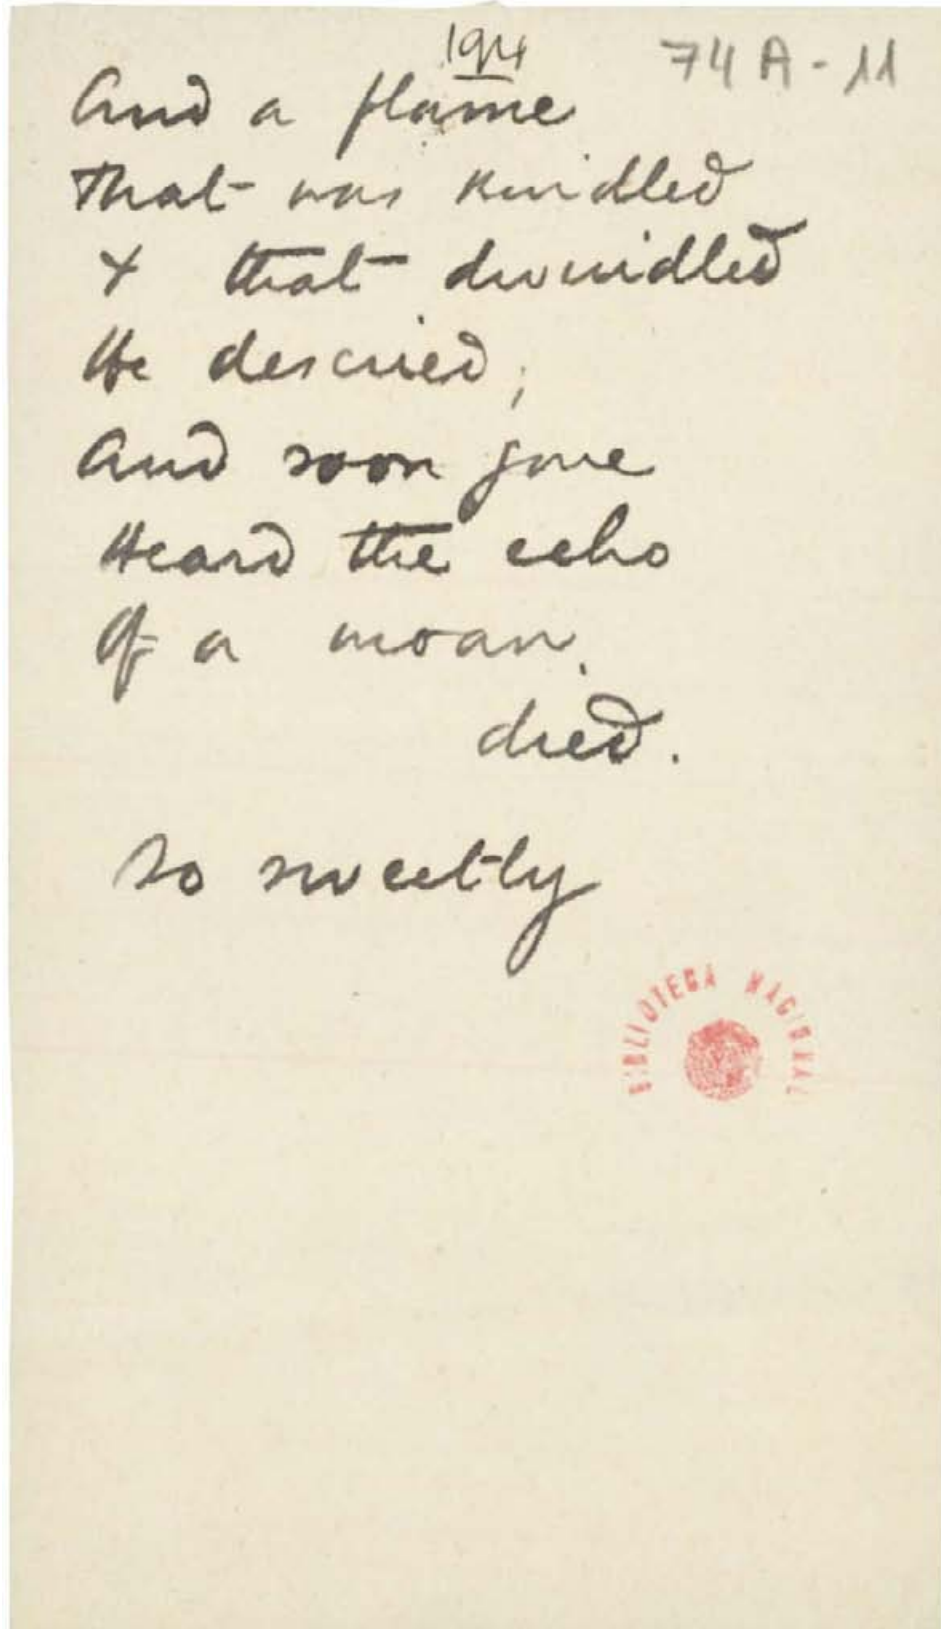 194
74A-11
And a flame
That was kindled
& that dwindled
He descried;
And soon gone
Heard the echo
Of a moan.
died.
So sweetly
BIBLIOTECA NACIONAL